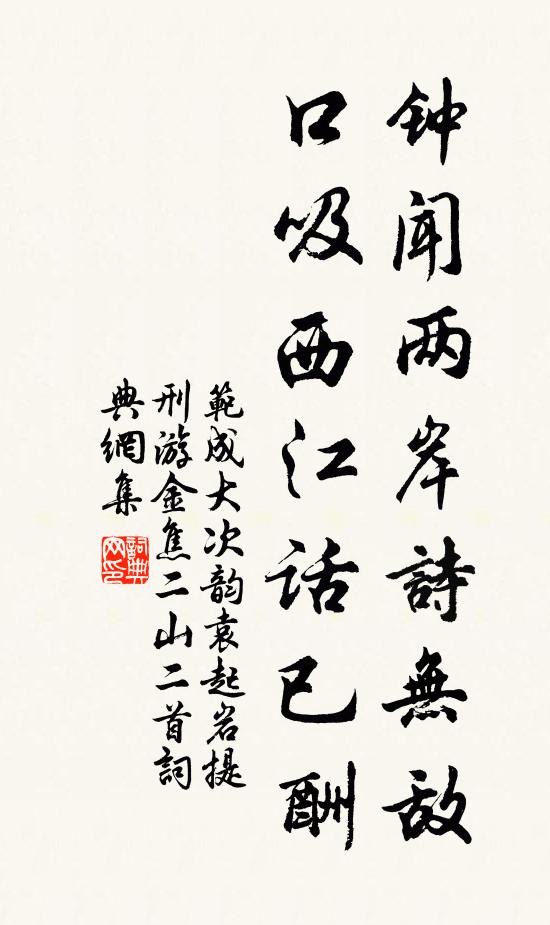 钟闻两岸詩無敌
口吸西江话已酬
範成大次韵袁起岩提
刑游金焦二山二首詞
典網集
詞典
网印